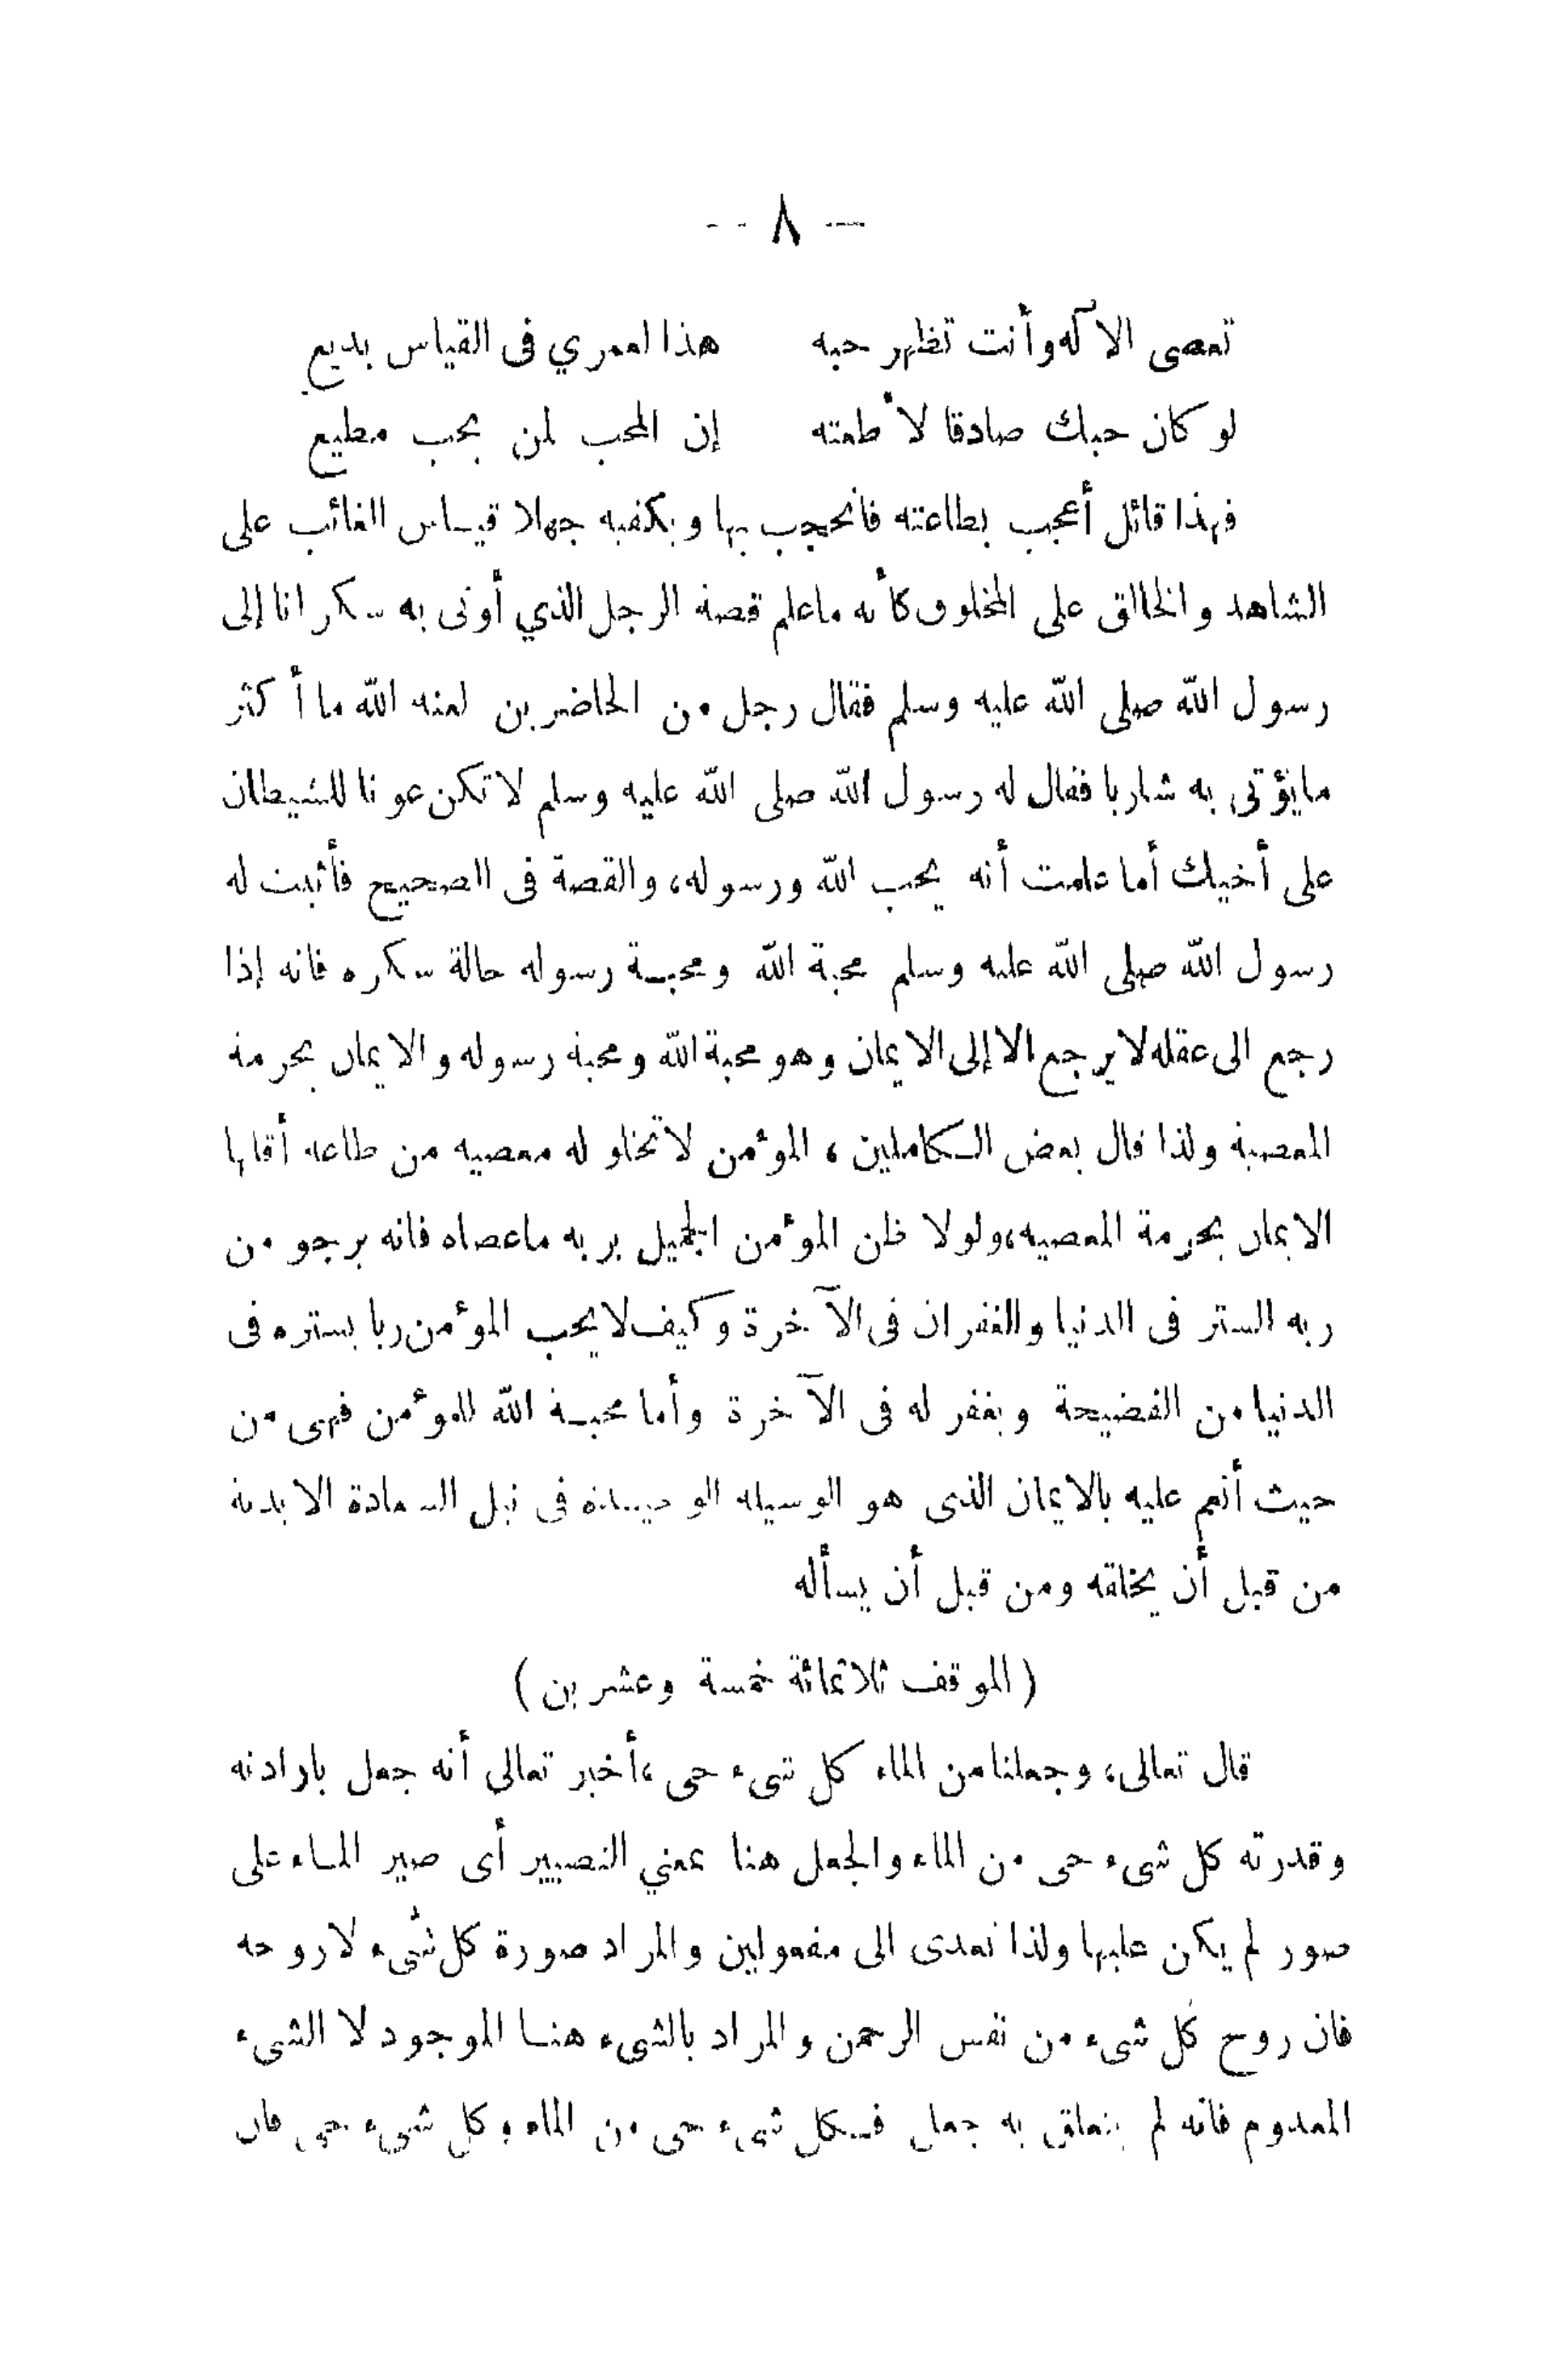 — ٨ —
تعصى الآله وأنت تظهر حبه هذا لعمري فى القياس بديع
لو كان حبك صادقا لأطعته إن المحب لمن يحب مطيع
فهذا قائل أعجب بطاعته فانحجب بها ويكفيه جهلا قياس الغائب على
الشاهد والخالق على المخلوق كأنه ماعلم قصة الرجل الذي أوتى به سكرانا إلى
رسول الله صلى الله عليه وسلم فقال رجل من الحاضرين لعنه الله ما أكثر
مايؤتى به شاربا فقال له رسول الله صلى الله عليه وسلم لا تكن عونا للشيطان
على أخيك أما علمت أنه يحب الله ورسوله، والقصة فى الصحيح فأثبت له
رسول الله صلى الله عليه وسلم محبة الله ومحبة رسوله حالة سكره فانه إذا
رجع الى عقله لا يرجع الا إلى الايمان وهو محبة الله ومحبة رسوله والايمان بحرمة
المعصية ولذا قال بعض الكاملين، المؤمن لا تخلو له معصيه من طاعه أقلها
الايمان بحرمة المعصيه، ولولا ظن المؤمن الجميل بربه ماعصاه فانه يرجو من
ربه الستر فى الدنيا والغفران فى الآخرة وكيف لا يحب المؤمن ربا يستره فى
الدنيا من الفضيحة ويغفر له فى الآخرة وأما محبة الله للمؤمن فهى من
حيث أنعم عليه بالايمان الذى هو الوسيله الوحيدة فى نيل السعادة الابدية
من قبل أن يخلقه ومن قبل أن يسأله
(الموقف ثلاثمائة خمسة وعشرين)
قال تعالى، وجعلنا من الماء كل شىء حى، أخبر تعالى أنه جعل بارادته
وقدرته كل شىء حى من الماء والجعل هنا بمعني التصيير أى صير الماء على
صور لم يكن عليها ولذا تعدى الى مفعولين والمراد صورة كل شىء لا روحه
فان روح كل شىء من نفس الرحمن والمراد بالشىء هنا الموجود لا الشىء
المعدوم فانه لم يتعلق به جعل فكل شىء حى من الماء وكل شىء حى فان